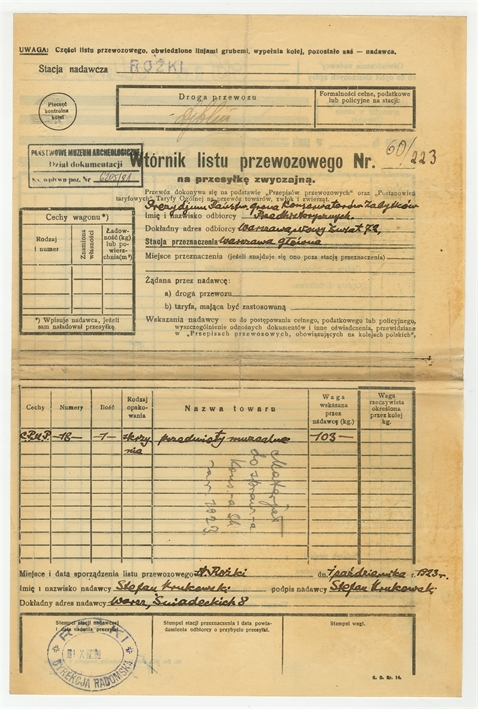 UWAGA: Części listu przewozowego, obwiedzione linjami grubemi, wypełnia kolej, pozostałe zaś — nadawca.
Stacja nadawcza ROŻKI
Pieczęć kontrolna kolei
Droga przewozu
Formalności celne, podatkowe lub policyjne na stacji:
PAŃSTWOWE MUZEUM ARCHEOLOGICZNE
Dział dokumentacji
Wtórnik listu przewozowego Nr. 60/223
na przesyłkę zwyczajną.
Przewóz dokonywa się na podstawie „Przepisów przewozowych" oraz „Postanowień
taryfowych" Taryfy Ogólnej na przewóz towarów, zwłok i zwierząt.
Prezydjum Państw. Grona Konserwatorów Zabytków
Imię i nazwisko odbiorcy Przedhistorycznych.
Dokładny adres odbiorcy Warszawa, Nowy Świat 72
Stacja przeznaczenia Warszawa główna
Miejsce przeznaczenia (jeżeli znajduje się ono poza stacją przeznaczenia)
Cechy wagonu *)
Rodzaj i numer
Znamiona własności
Ładowność (kg) lub powierzchnia (m²)
*) Wpisuje nadawca, jeżeli
sam naładował przesyłkę
Żądana przez nadawcę:
a) droga przewozu
b) taryfa, mająca być zastosowaną
Wskazania nadawcy co do postępowania celnego, podatkowego lub policyjnego,
wyszczególnienie odnośnych dokumentów i inne oświadczenia, przewidziane
w "Przepisach przewozowych, obowiązujących na kolejach polskich".
Cechy Numery Ilość Rodzaj opakowania Nazwa towaru Waga wskazana przez nadawcę (kg.) Waga rzeczywista określona przez kolej kg.
16 — 1 — skrzynia przedmioty muzealne 103 —
Materjał
do spraw-a
Kons-a Sk
za r 1923
Miejsce i data sporządzenia listu przewozowego St. Rożki dn. 1 października 1923 r.
Imię i nazwisko nadawcy Stefan Krukowski podpis nadawcy Stefan Krukowski
Dokładny adres nadawcy Warsz, Śniadeckich 8
Stempel stacji nadawczej
i data nadania przesyłki
Stempel stacji przeznaczenia i data powiadomienia odbiorcy o przybyciu przesyłki.
Stempel wagi.
ROŻKI
DYREKCJA RADOMSKA